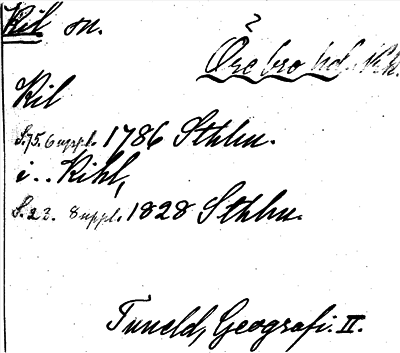 Kil sn.
2
Örebro hd. Nk.
Kil
S.75. 6 uppl. 1786 Sthlm.
i.. Kihl,
S.23. 8 uppl. 1828 Sthlm.
Tuneld, Geografi. II.